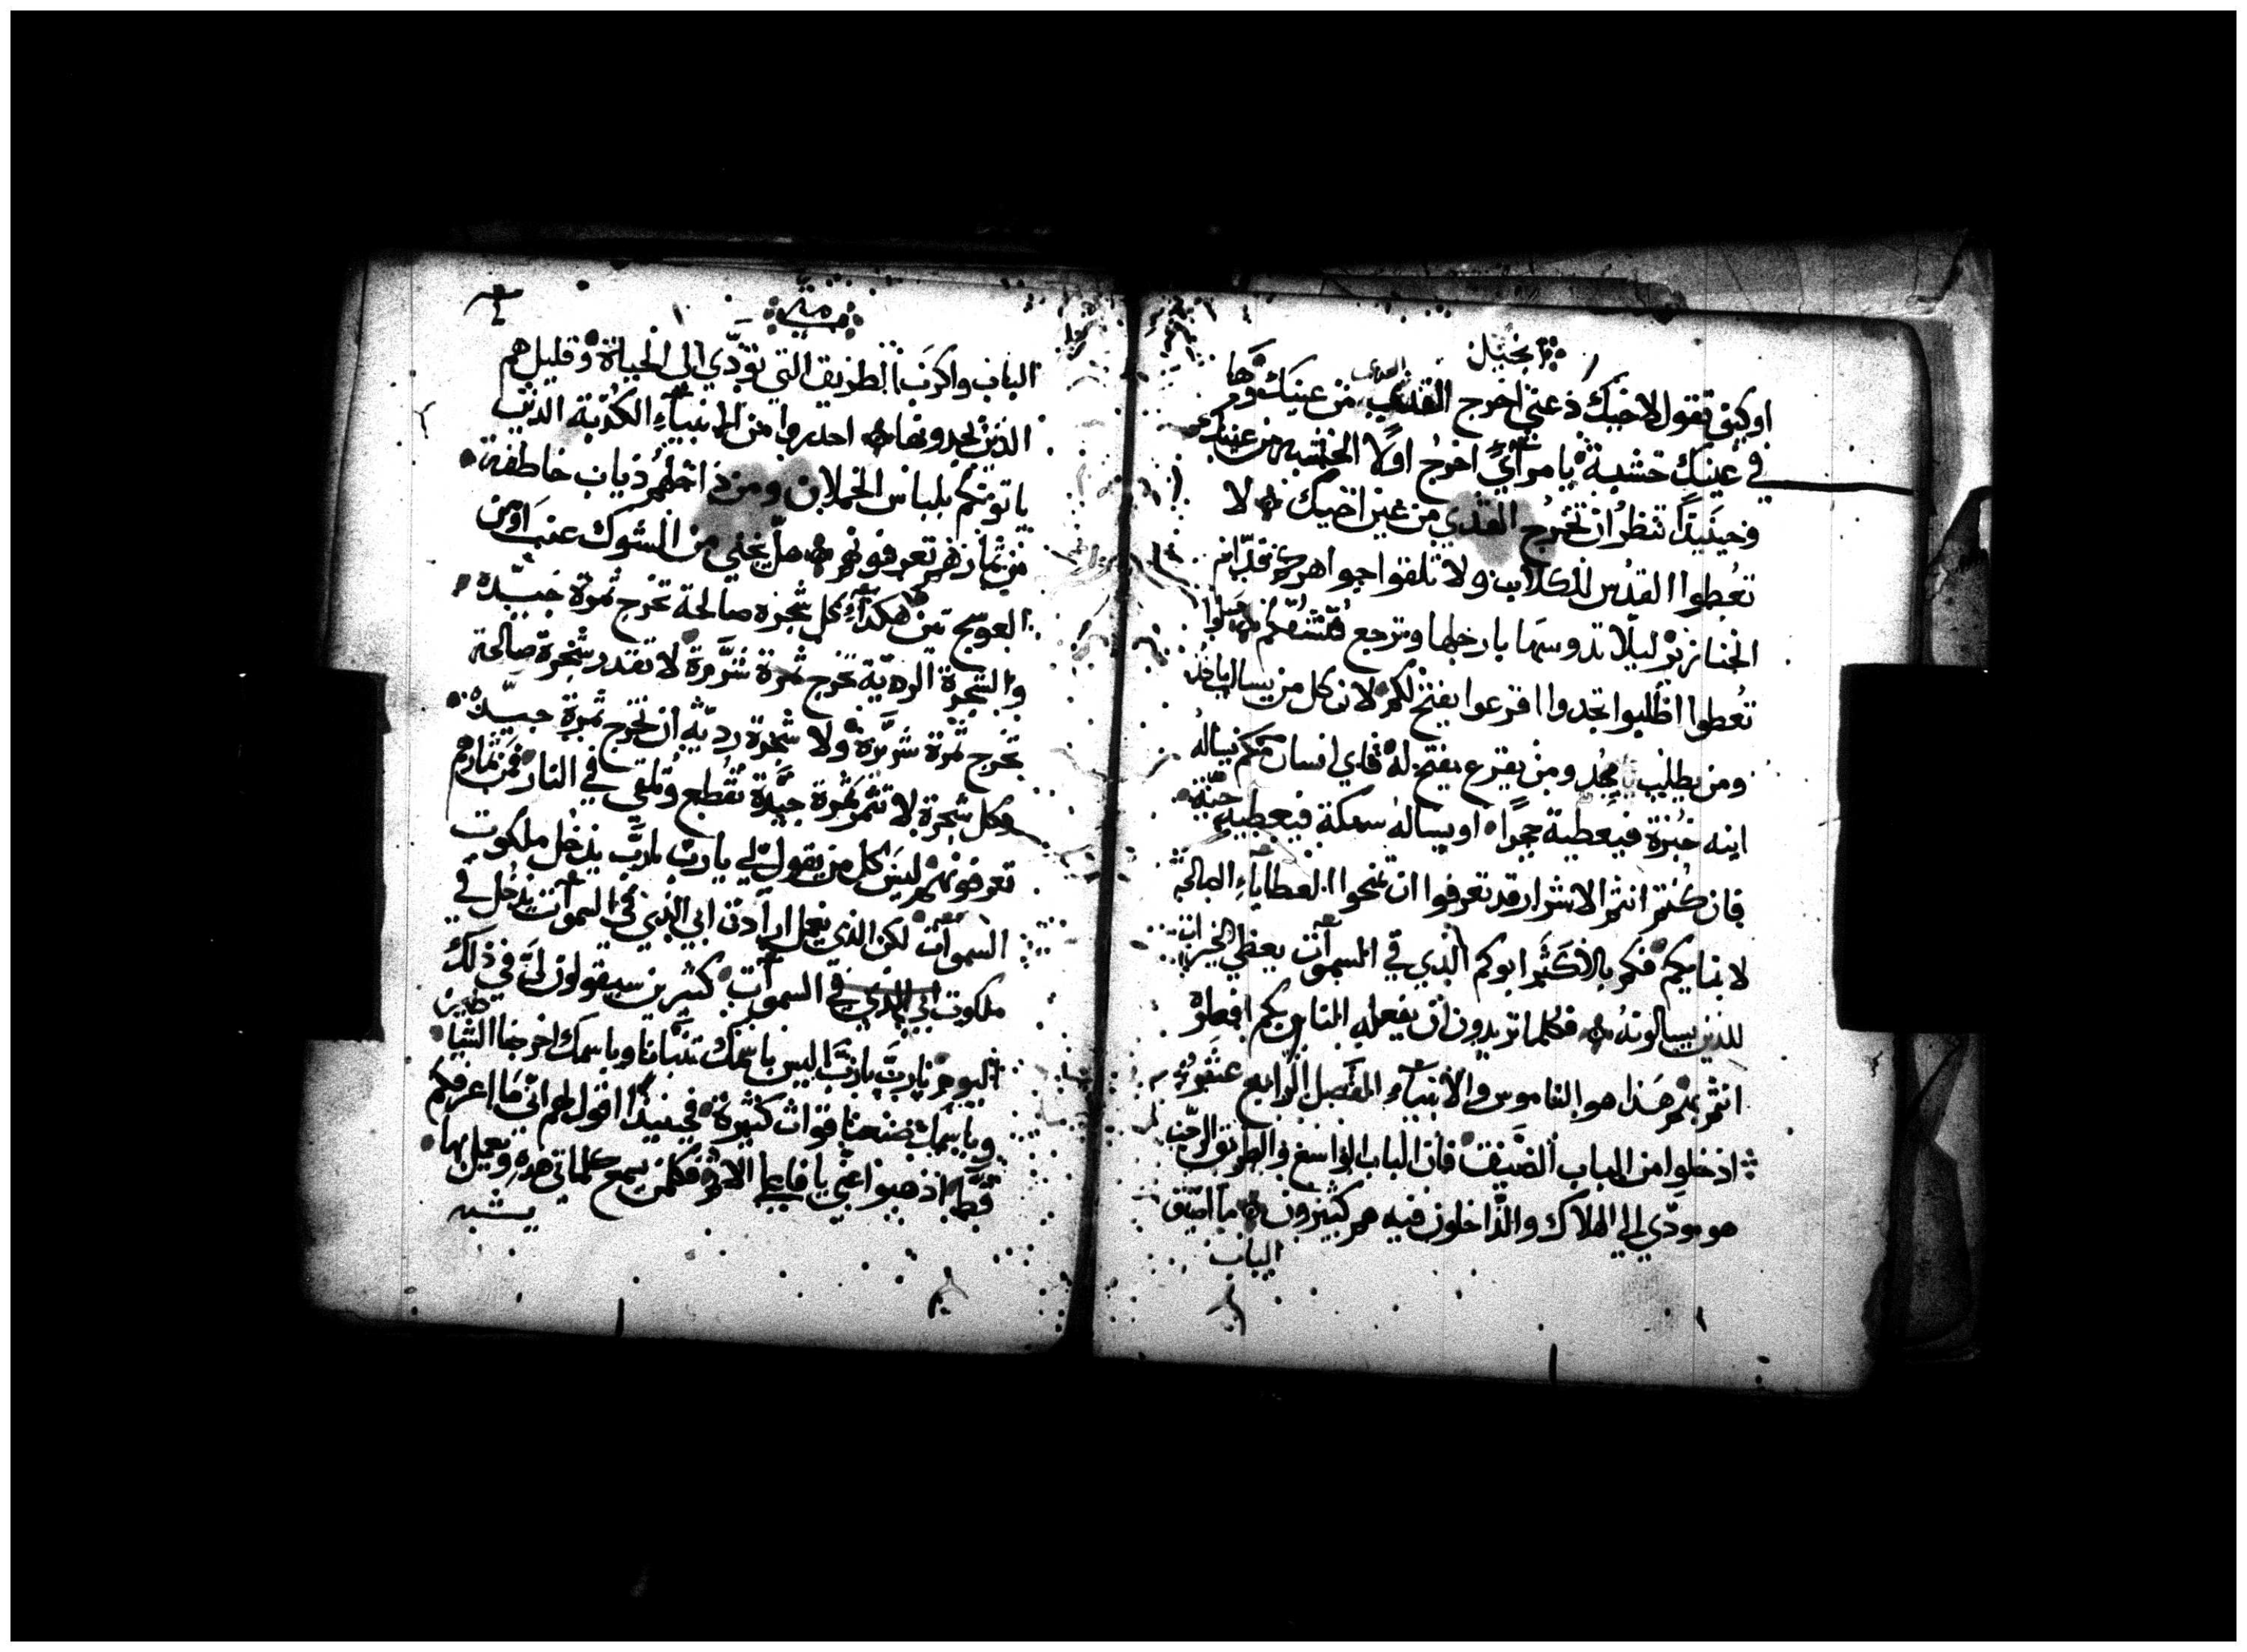 انجيل
اوكيف تقول لاخيك دعني اخرج القذي من عينك وها
في عينك خشبة يا مرآي اخرج اولًا الخشبه من عينك
وحينيدًا تنظر ان تخرج القذي من عين اخيك لا
تعطوا القدس للكلاب ولا تلقوا جواهركم قدّام
الخنازير ليلّا تدوسها بارجلها وترجع فتشقكم سلوا
تعطوا اطلبوا تجدوا اقرعوا يفتح لكم لان كل من يسال ياخد
ومن يطلب يجد ومن يقرع يفتح له فاي انسان منكم يساله
ابنه خبزة فيعطية حجرًا او يساله سمكة فيعطيه حيّة
فان كنتم انتم الاشرار قد تعرفوا ان تمنحوا العطاياء الصالحة
لابنايكم فكم بالاكثر ابوكم الذي في السموآت يعطي الخيرات
للذين يسالونه فكلما تريدون ان يفعله الناس بكم افعلوه
انتم بهم هذا هو الناموس والانبيآء الفصل الرابع عشر
ادخلوا من الباب الضيق فان الباب الواسع والطريق الرحب
هو مودّي الي الهلاك والداخلون فيه هم كثيرون ما اضيق
الباب
متي
الباب واكرب الطريق التي تودّي الى الحياة وقليل هم
الذين يجدونها احدروا من الانبيآء الكدبة الذين
ياتونكم بلباس الحملان ومن داخلهم ذياب خاطفة
من ثمارهم تعرفونهم هل يجني من الشوك عنب او من
العوسج تين هكذا كل شجره صالحة تخرج ثمرة جيّدة
والشجرة الرديّة تخرج ثمرة شرّيرة لا تقدر شجرة صالحة
تخرج ثمرة شرّيرة ولا شجرة رديّه ان تخرج ثمرة جيّدة
وكل شجرة لا تثمر ثمرة جيّدة تقطع وتلقي في النار فمن ثمارهم
تعرفونهم ليس كل من يقول لي يارب يارب يدخل ملكوت
السموآت لكن الذي يعمل ارادة ابي الذي في السموآت يدخل في
ملكوت ابي الذي في السموآت كثيرين سيقولون لي في ذلك
اليوم يارب يارب اليس باسمك تنبانا وباسمك اخرجنا الشياطين
وباسمك صنعنا قوات كثيرة فحينيدًا اقول لهم اني ما اعرفكم
قطّ اذهبوا عني يا فاعلي الاثم فكلمن يسمع كلماتي هده ويعمل بها
يشبه